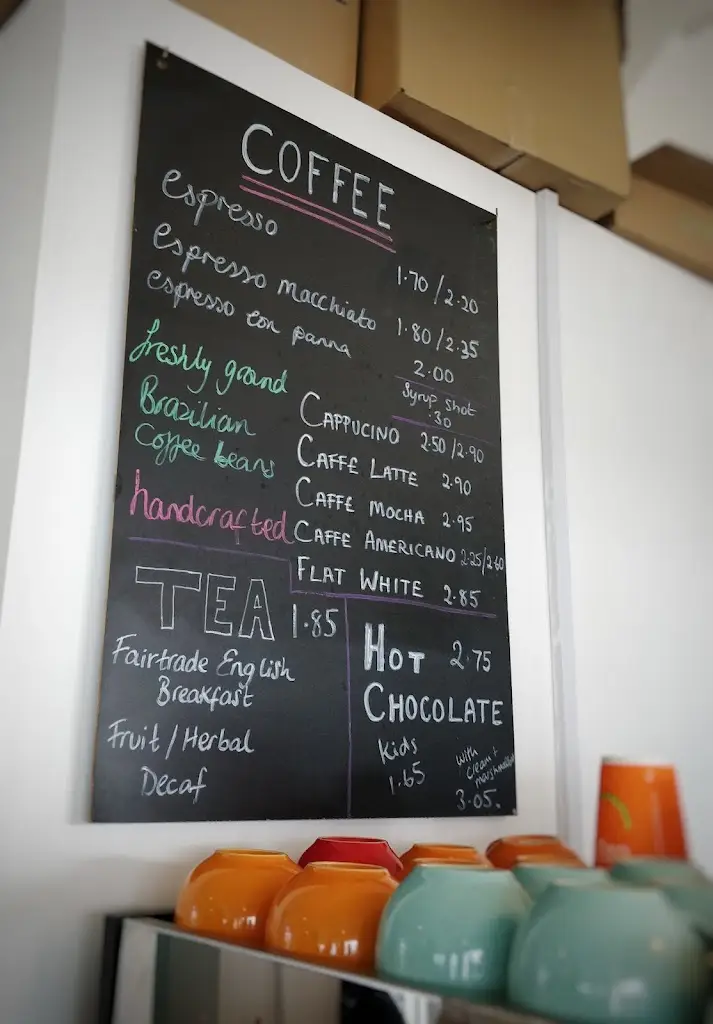 COFFEE
espresso 1.70/2.20
espresso macchiato 1.80/2.35
espresso con panna 2.00
Syrup shot
.30
freshly grond
Brazilian
Coffee beans
handcrafted
CAPPUCINO 2.50/2.90
CAFFE LATTE 2.90
CAFFE MOCHA 2.95
CAFFE AMERICANO 2.25/2.60
FLAT WHITE 2.85
TEA 1.85
Fairtrade English
Breakfast
Fruit/Herbal
Decaf
HOT 2.75
CHOCOLATE
Kids
1.65
with
cream +
marshmallow
3.05.